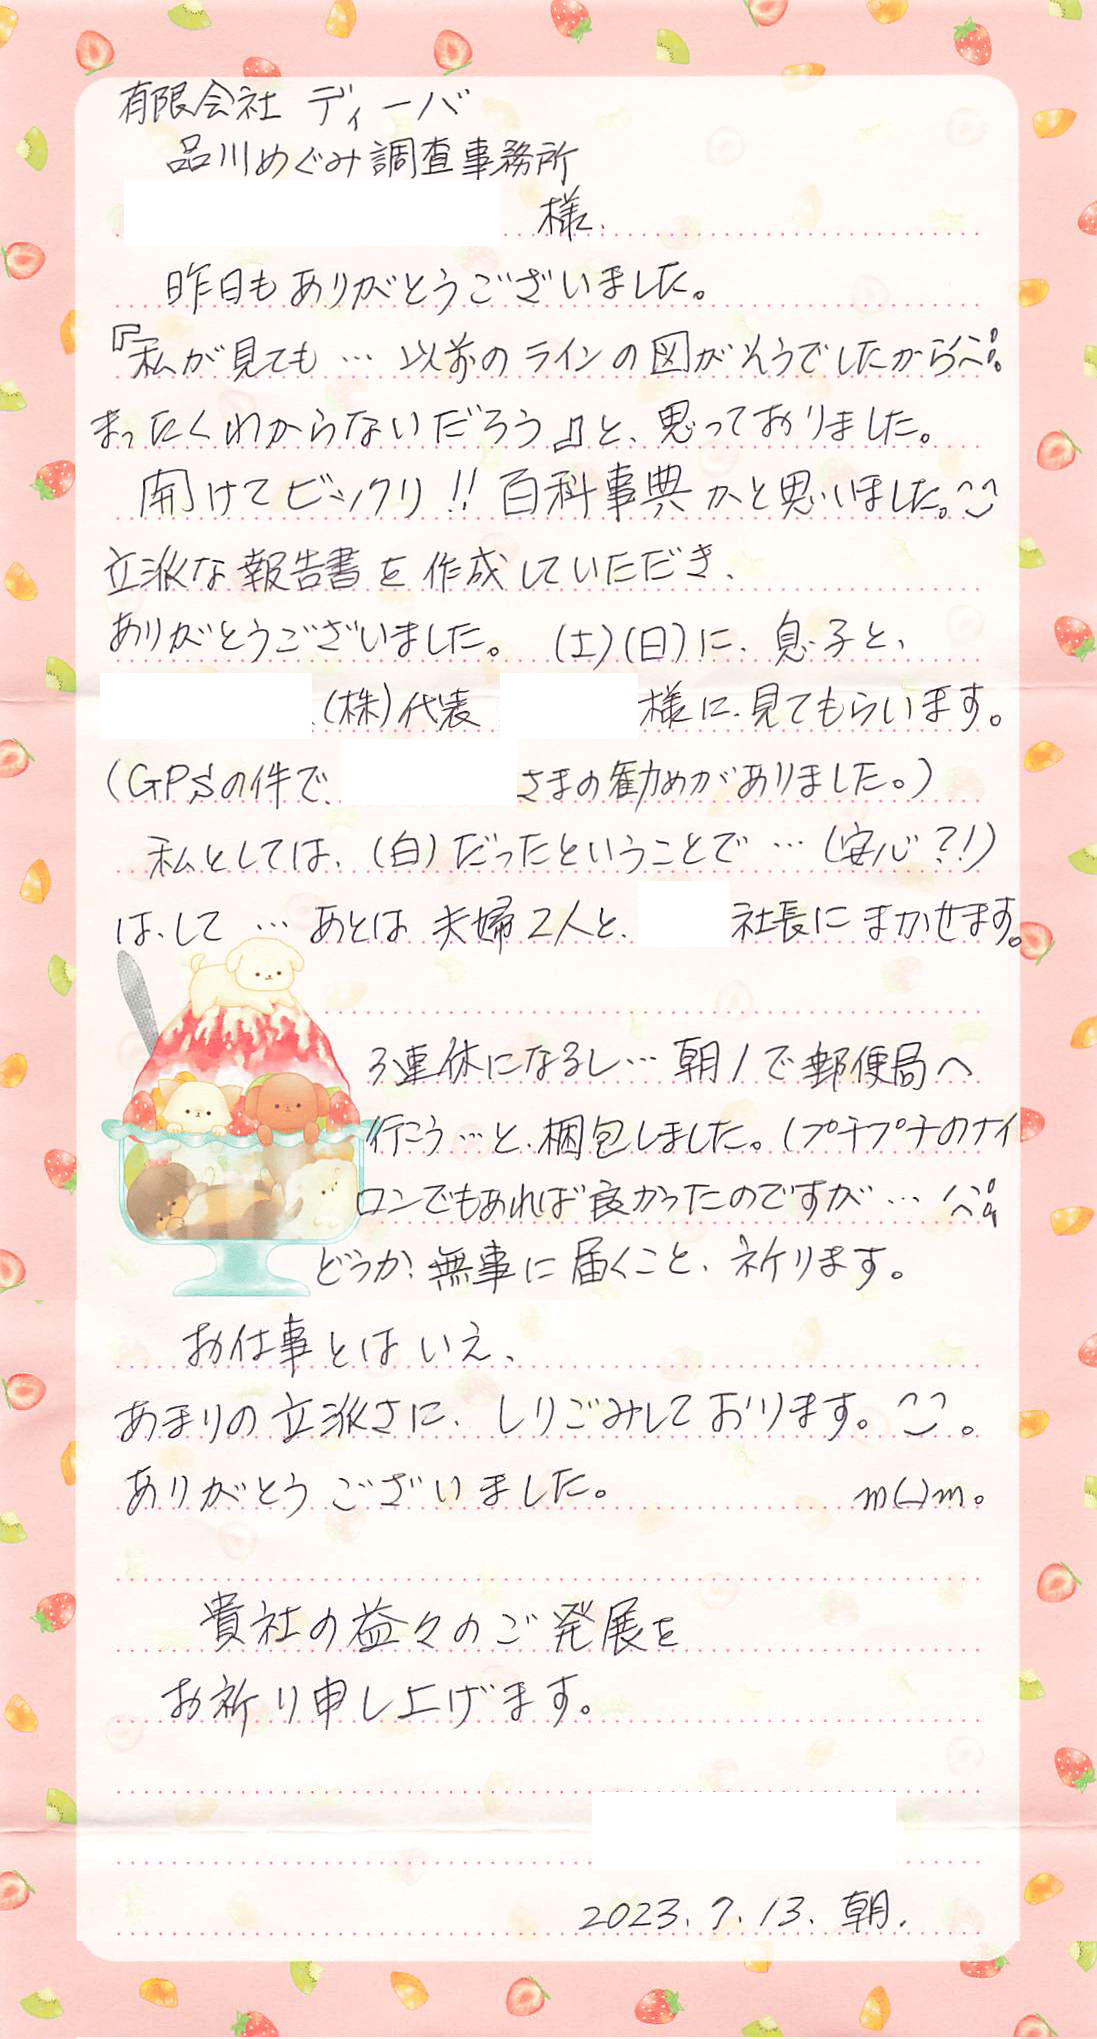 有限会社 ディーバ
品川めぐみ調査事務所
様.
昨日もありがとうございました。
『私が見ても… 以前のラインの図がそうでしたから(^^;
まったくわからないだろう』と、思っておりました。
開けてビックリ!! 百科事典かと思いました。^^
立派な報告書を作成していただき、
ありがとうございました。 (土)(日)に、息子と、
、(株)代表 様に、見てもらいます。
(GPSの件で、 さまの勧めがありました。)
私としては、(白)だったということで…(安心?!)
は、して … あとは 夫婦2人と、 社長に まかせます。
3連休になるし… 朝1で郵便局へ
行こう…と、梱包しました。(プチプチのナイ
ロンでもあれば良かったのですが… (^^;
どうか、無事に届くこと、祈ります。
お仕事とはいえ、
あまりの立派さに、しりごみしております。^^。
ありがとうございました。 m(_)m。
貴社の益々のご発展を
お祈り申し上げます。
2023.7.13. 朝.